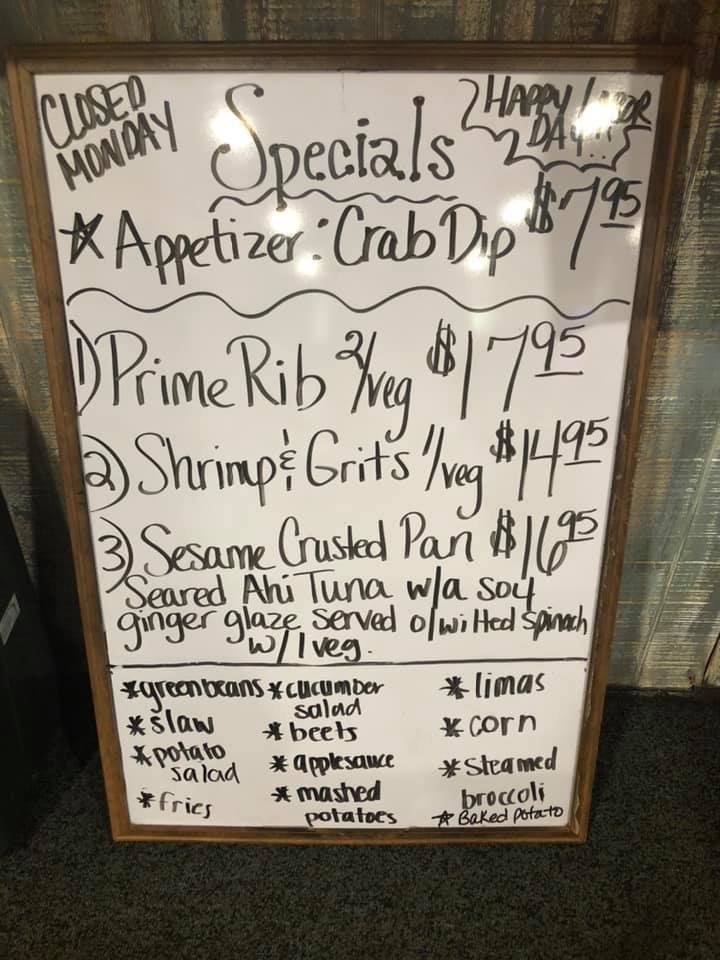 CLOSED
MONDAY
Specials
HAPPY LABOR
DAY!!...
* Appetizer: Crab Dip $7.95
1) Prime Rib 2/veg $17.95
2) Shrimp & Grits 1/veg $14.95
3) Sesame Crusted Pan $16.95
Seared Ahi Tuna w/a soy
ginger glaze served o/wilted spinach
w/1 veg.
*greenbeans
*slaw
*potato
salad
*fries
*cucumber
salad
*beets
*applesauce
*mashed
potatoes
*limas
*corn
*Steamed
broccoli
* Baked Potato